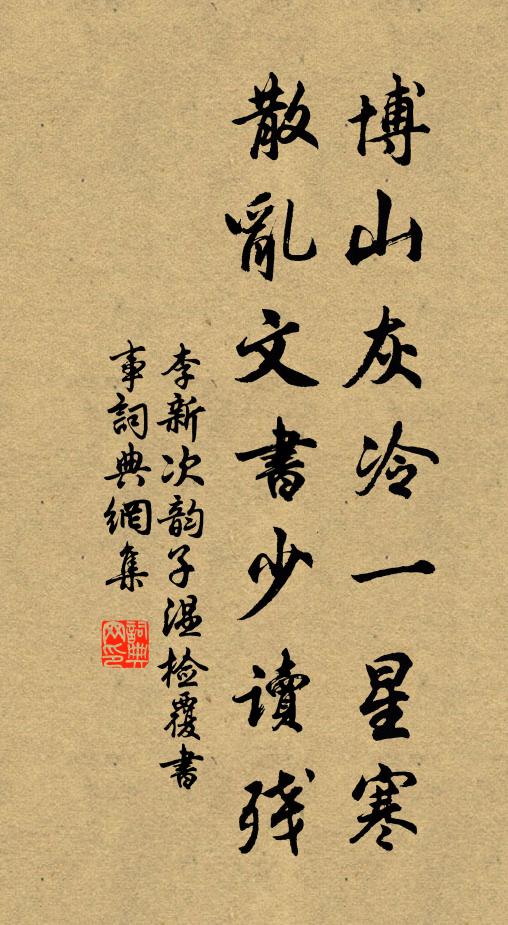 博山灰冷一星寒
散亂文書少讀残
李新次韵子温检覆書
事詞典網集
詞典網印